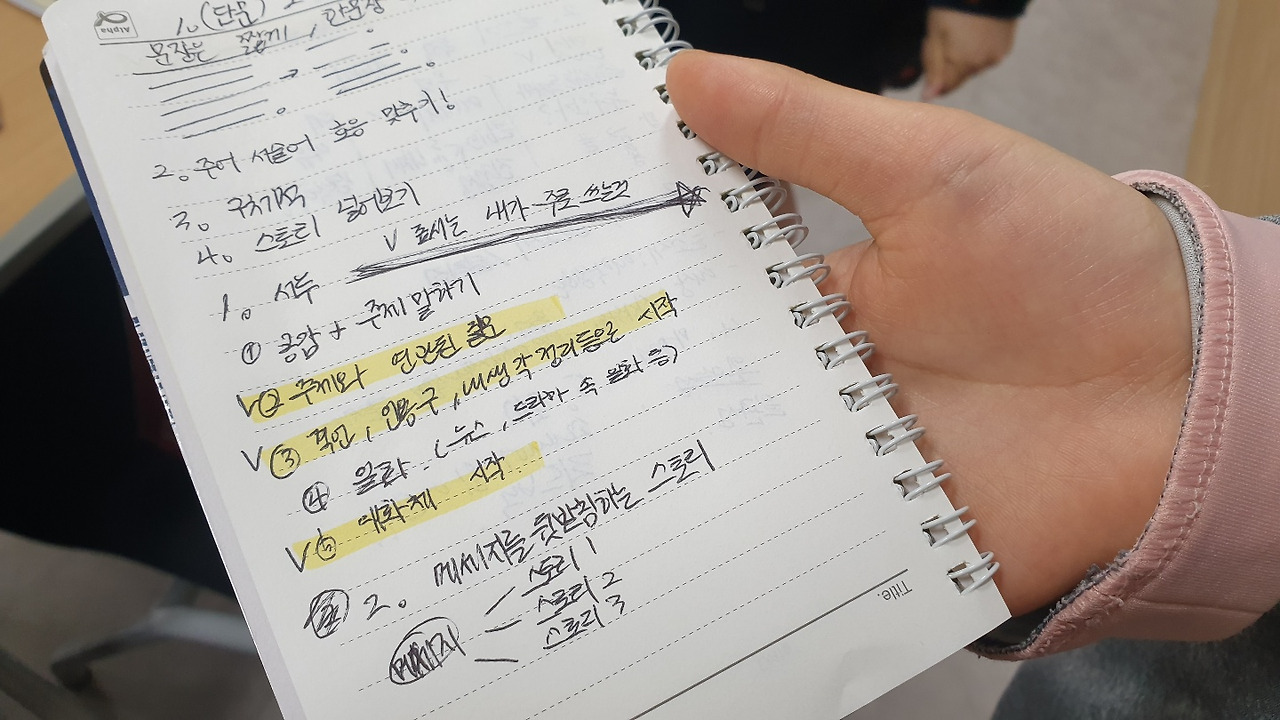 Alpha
1. (단문)
문장은 짧게, 간문장
2. 주어 서술어 호응 맞추기!
3. 구체적
4. 스토리 넣어보기
V 표시는 내가 주로 쓰는것
1. 서두
① 공감 + 주제 말하기
V② 주제와 연관된
V③ 격언, 인용구, 내생각 정리등으로 시작
④ 일화 (뉴스, 드라마 속 일화 등)
V⑤ 대화체 시작
2. 메세지를 뒷받침하는 스토리
메세지
스토리 1
스토리 2
스토리 3
Title.